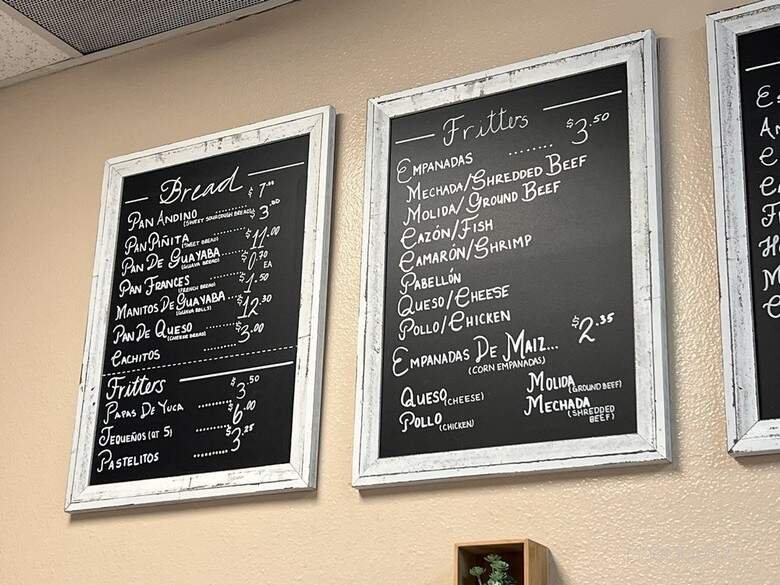 Bread
PAN ANDINO (SWEET SOURDOUGH BREAD) ........ $7.00
PAN PIÑITA (SWEET BREAD) ........ $3.00
PAN DE GUAYABA (GUAVA BREAD) ........ $11.00
PAN FRANCES (FRENCH BREAD) ........ $0.70 EA
MANITOS DE GUAYABA (GUAVA ROLLS) ........ $1.50
PAN DE QUESO (CHEESE BREAD) ........ $12.30
CACHITOS ........ $3.00
Fritters
PAPAS DE YUCA ........ $3.50
TEQUEÑOS (QT 5) ........ $6.00
PASTELITOS ........ $3.25
Fritters
EMPANADAS ........ $3.50
MECHADA/SHREDDED BEEF
MOLIDA/GROUND BEEF
CAZÓN/FISH
CAMARÓN/SHRIMP
PABELLÓN
QUESO/CHEESE
POLLO/CHICKEN
EMPANADAS DE MAIZ... $2.35
(CORN EMPANADAS)
QUESO (CHEESE) MOLIDA (GROUND BEEF)
POLLO (CHICKEN) MECHADA (SHREDDED BEEF)